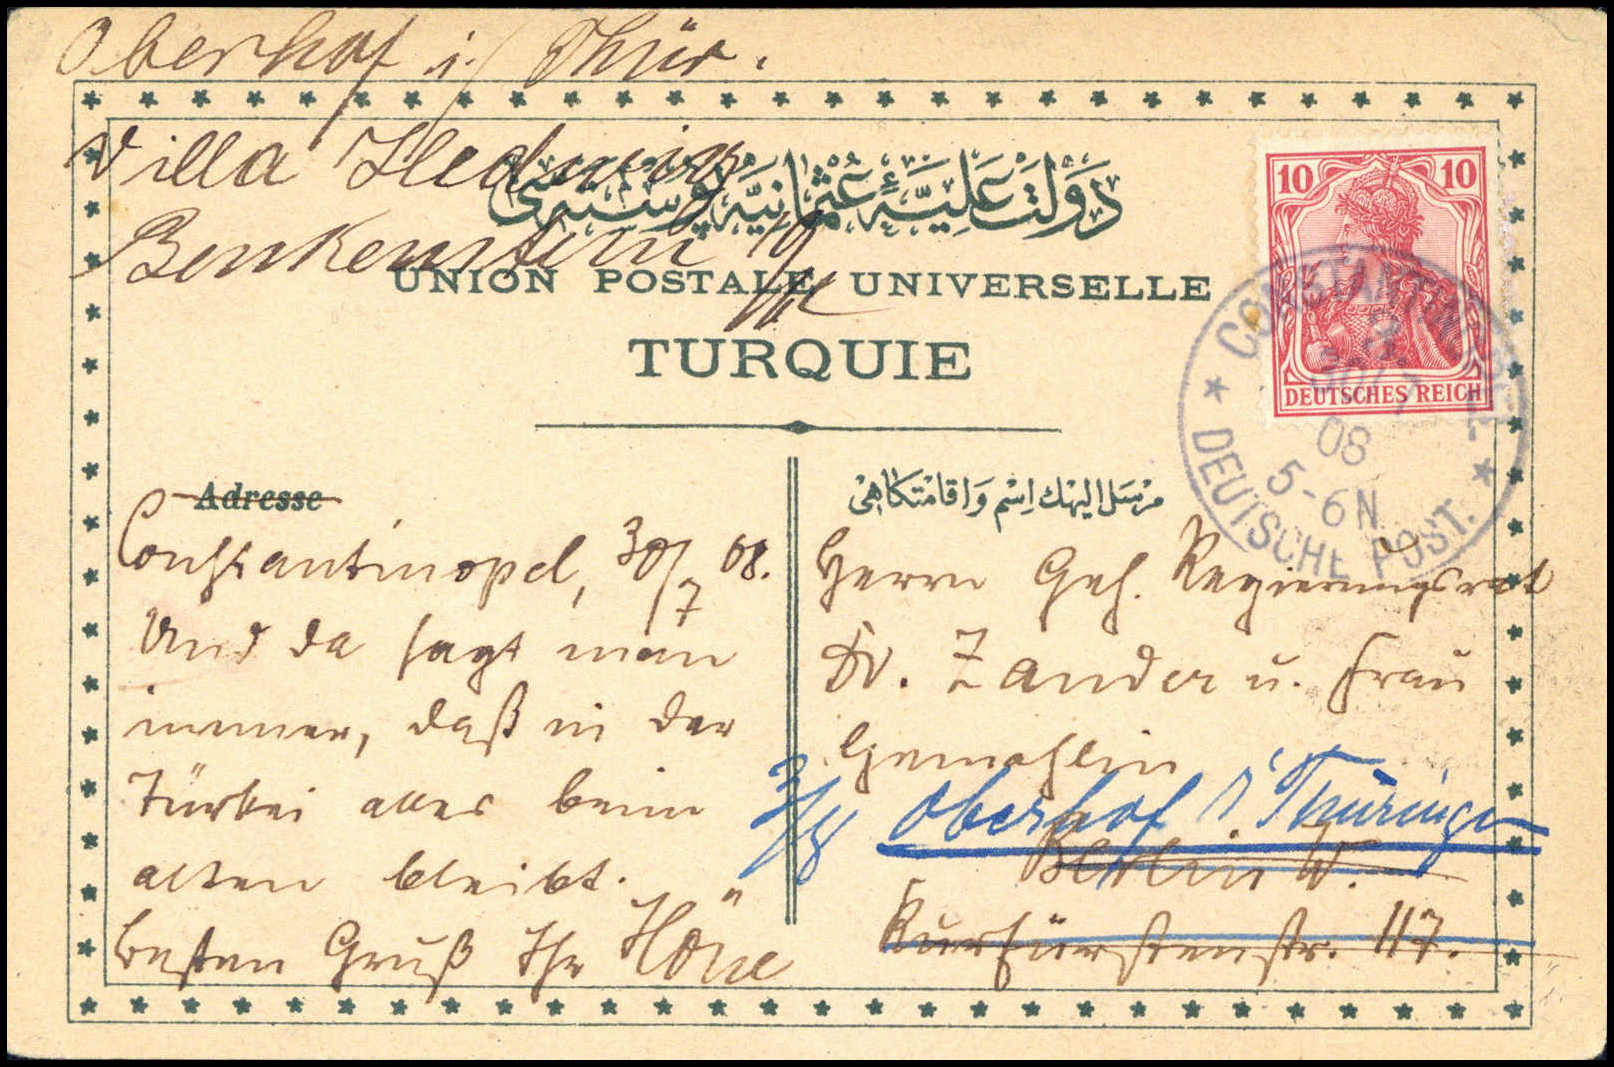 Oberhof i/ Thür.
Villa Hedwig
دولت عليۀ عثمانيه پوسته سی
UNION POSTALE UNIVERSELLE
TURQUIE
10 10
DEUTSCHES REICH
CONSTANTINOPEL
30/7
08
5-6N
DEUTSCHE POST.
Adresse
مرسل اليهك اسم و اقامتكاهی
Constantinopel, 30/7 08.
Und da sagt man
immer, daß in der
Türkei alles beim
alten bleibt.
besten Gruß Ihr
Herrn Geh. Regierungsrat
Dr. Zander u. Frau
Gemahlin
3/8 Oberhof i/ Thüringen
Berlin W.
Kurfürstenstr. 117.